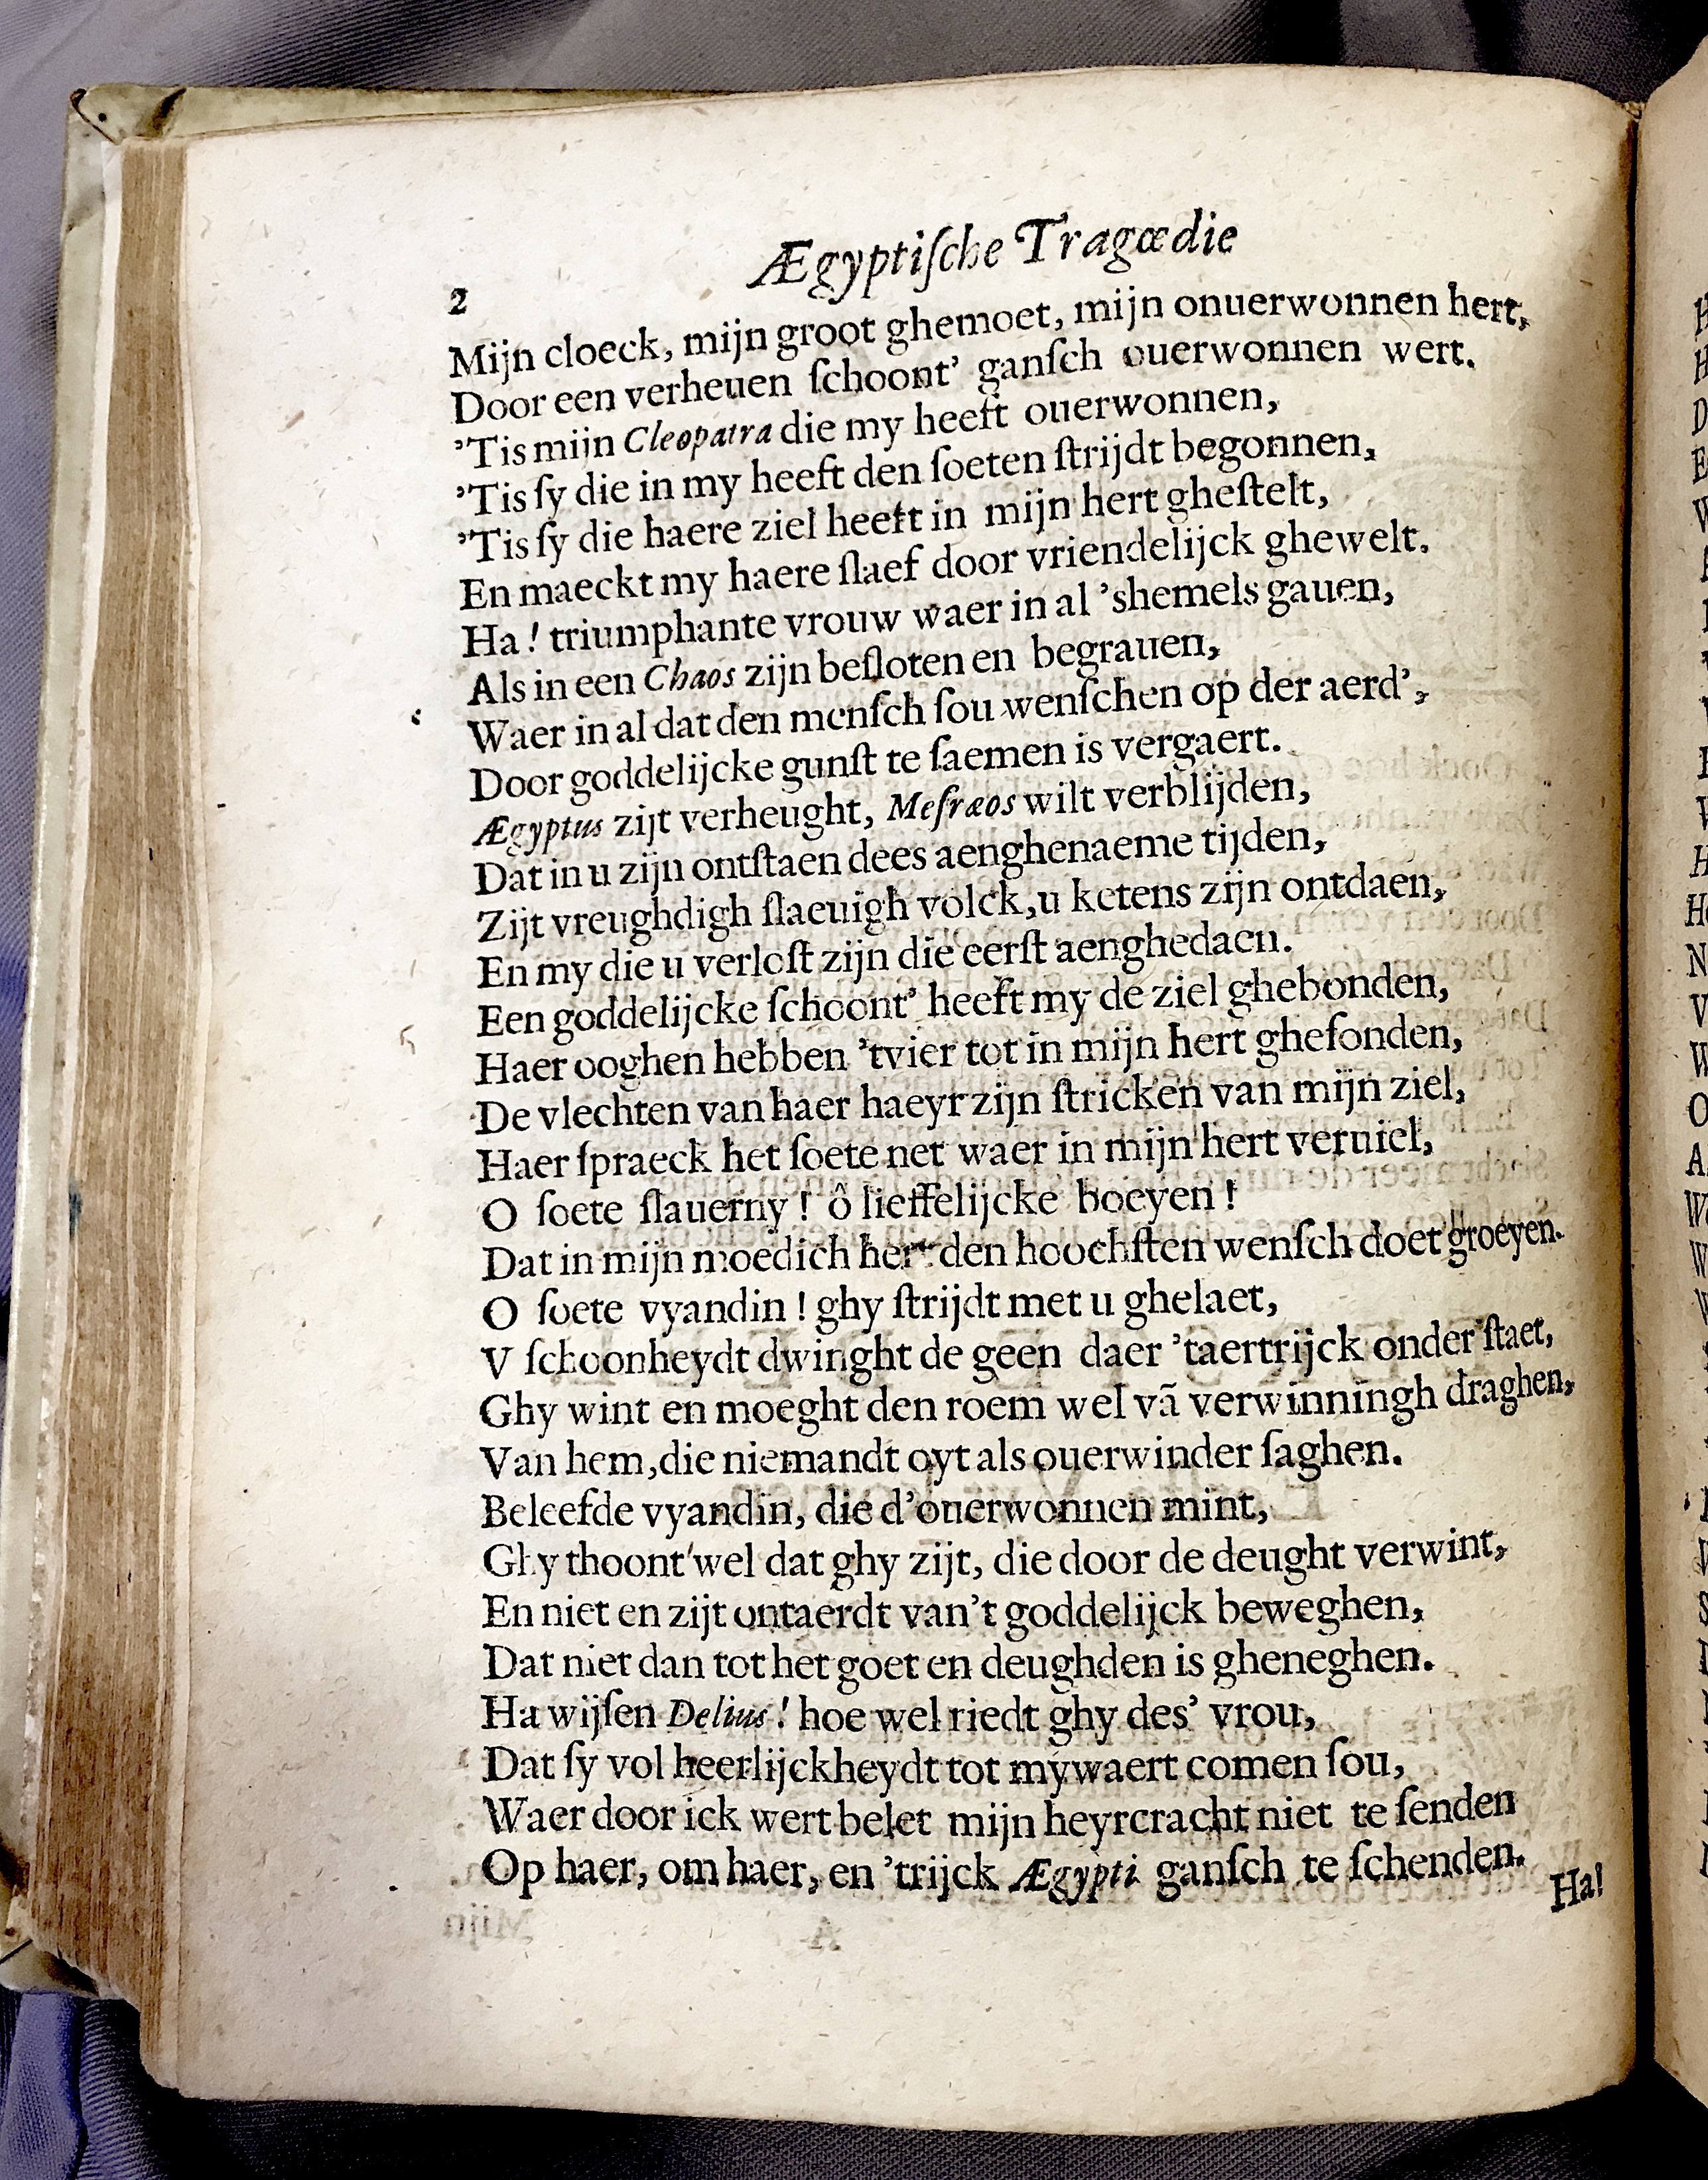 Ægyptiſche Tragœdie
2
Mijn cloeck, mijn groot ghemoet, mijn onuerwonnen hert,
Door een verheuen ſchoont' ganſch ouerwonnen wert.
'Tis mijn Cleopatra die my heeft ouerwonnen,
'Tis ſy die in my heeft den ſoeten ſtrijdt begonnen,
'Tis ſy die haere ziel heeft in mijn hert gheſtelt,
En maeckt my haere ſlaef door vriendelijck ghewelt.
Ha! triumphante vrouw waer in al 'shemels gauen,
Als in een Chaos zijn beſloten en begrauen,
Waer in al dat den menſch ſou wenſchen op der aerd',
Door goddelijcke gunſt te ſaemen is vergaert.
Ægyptus zijt verheught, Meſræos wilt verblijden,
Dat in u zijn ontſtaen dees aenghenaeme tijden,
Zijt vreughdigh ſlaeuigh volck, u ketens zijn ontdaen,
En my die u verloſt zijn die eerſt aenghedaen.
Een goddelijcke ſchoont' heeft my de ziel ghebonden,
Haer ooghen hebben 'tvier tot in mijn hert gheſonden,
De vlechten van haer haeyr zijn ſtricken van mijn ziel,
Haer ſpraeck het ſoete net waer in mijn hert veruiel,
O ſoete ſlauerny! ô lieffelijcke boeyen!
Dat in mijn moedich hert den hoochſten wenſch doet groeyen.
O ſoete vyandin! ghy ſtrijdt met u ghelaet,
V ſchoonheydt dwinght de geen daer 'taertrijck onder ſtaet,
Ghy wint en moeght den roem wel vã verwinningh draghen,
Van hem, die niemandt oyt als ouerwinder ſaghen.
Beleefde vyandin, die d'ouerwonnen mint,
Ghy thoont wel dat ghy zijt, die door de deught verwint,
En niet en zijt ontaerdt van't goddelijck beweghen,
Dat niet dan tot het goet en deughden is gheneghen.
Ha wijſen Delius! hoe wel riedt ghy des' vrou,
Dat ſy vol heerlijckheydt tot mywaert comen ſou,
Waer door ick wert belet mijn heyrcracht niet te ſenden
Op haer, om haer, en 'trijck Ægypti ganſch te ſchenden.
Ha!